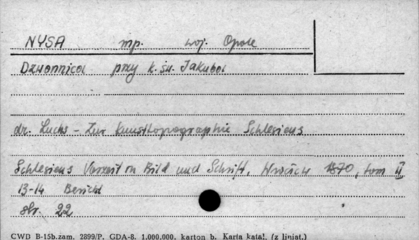 NYSA mp. woj. Opole
Dzwonnica przy k. św. Jakuba
dr. Luchs - Zur Kunsttopographie Schlesiens
Schlesiens Vorzeit in Bild und Schrift. Wrocław 1870, tom II
13-14 Bericht
str. 22
CWD B-15b.zam. 2899/P. GDA-8. 1.000.000. karton b. Karta katal. (z liniat.)